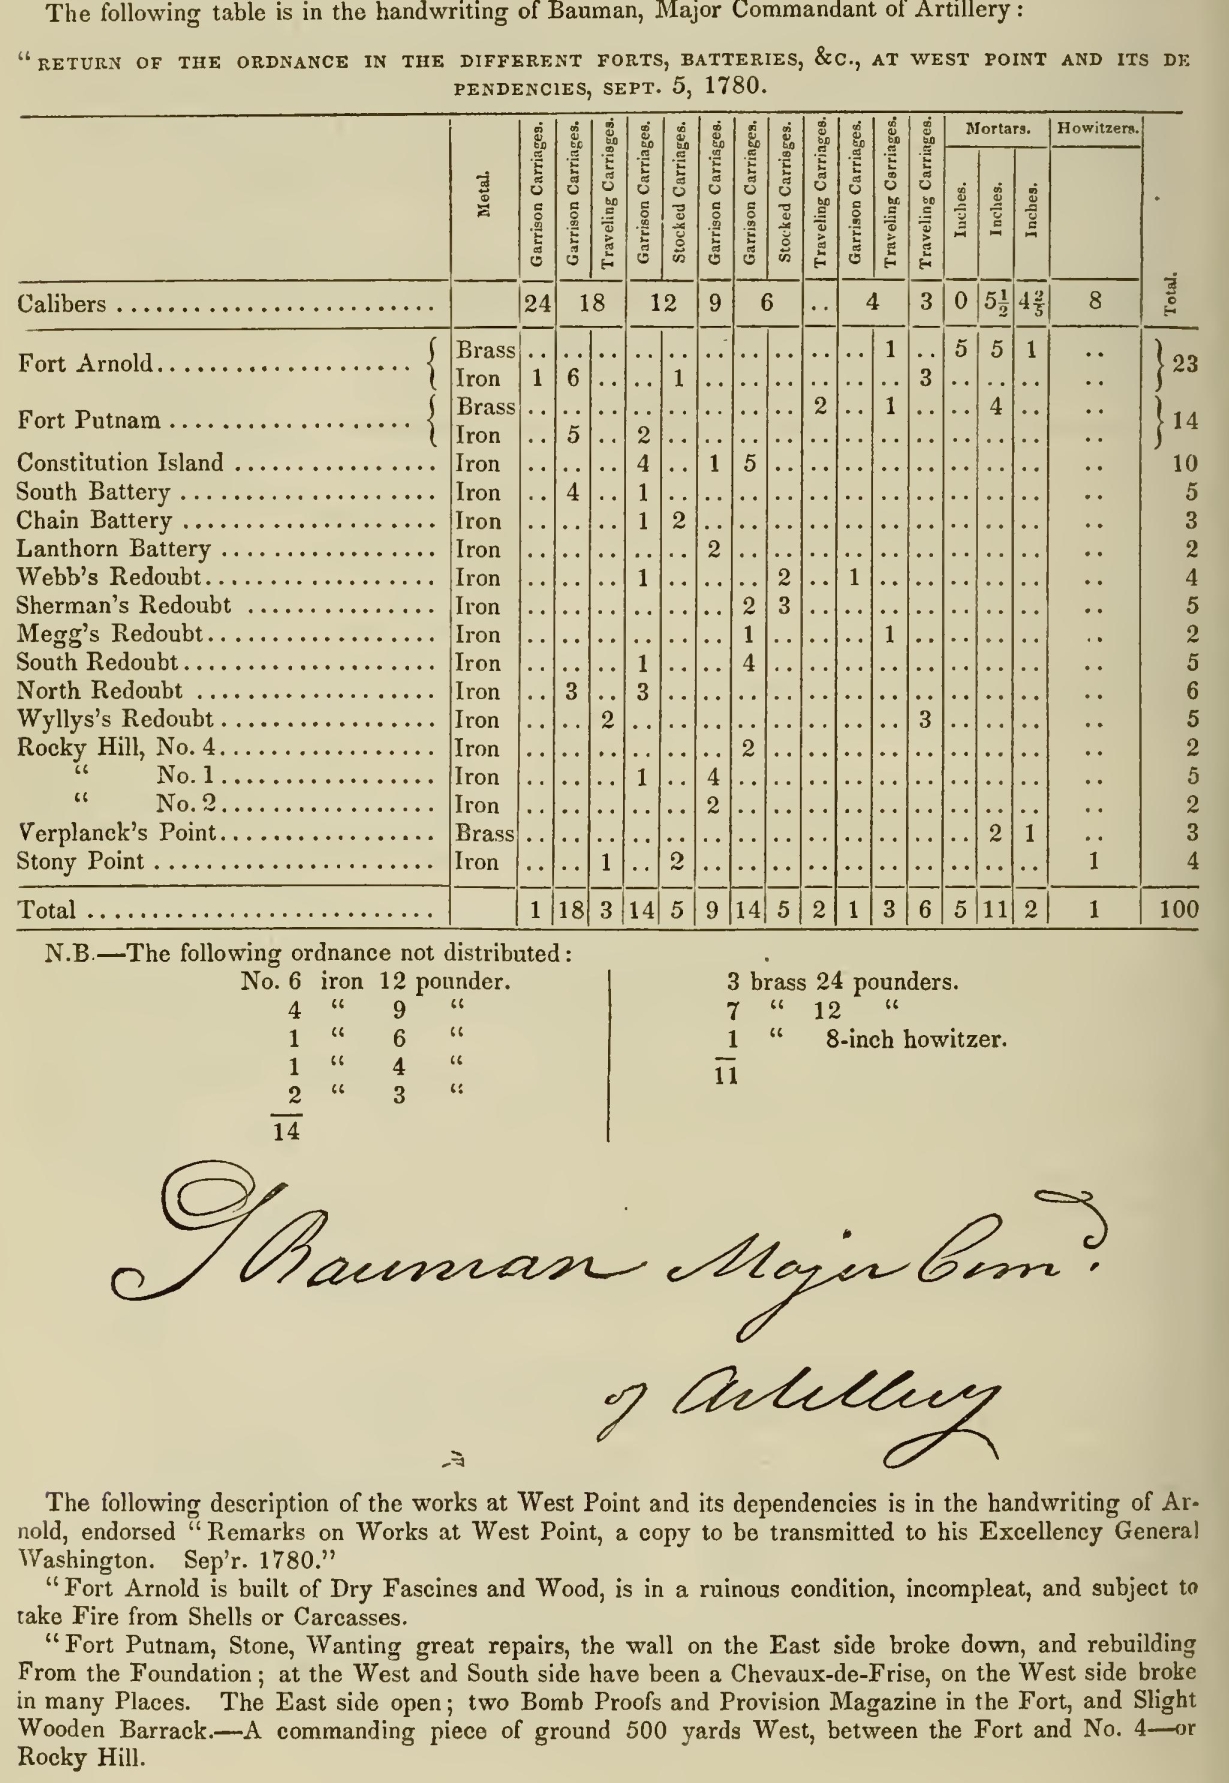 The following table is in the handwriting of Bauman, Major Commandant of Artillery:
“RETURN OF THE ORDNANCE IN THE DIFFERENT FORTS, BATTERIES, &C., AT WEST POINT AND ITS DE
PENDENCIES, SEPT. 5, 1780.
Metal. Garrison Carriages. Garrison Carriages. Traveling Carriages. Garrison Carriages. Stocked Carriages. Garrison Carriages. Garrison Carriages. Stocked Carriages. Traveling Carriages. Garrison Carriages. Traveling Carriages. Traveling Carriages. Mortars. Howitzers.
Inches. Inches. Inches. Total.
Calibers .......................... 24 18 12 9 6 .. 4 3 0 5½ 4⅖ 8
Fort Arnold.................... { Brass .. .. .. .. .. .. .. .. .. .. 1 .. 5 5 1 .. } 23
Iron 1 6 .. .. 1 .. .. .. .. .. .. 3 .. .. .. ..
Fort Putnam ................... { Brass .. .. .. .. .. .. .. .. 2 .. 1 .. .. 4 .. .. } 14
Iron .. 5 .. 2 .. .. .. .. .. .. .. .. .. .. .. ..
Constitution Island ................ Iron .. .. .. 4 .. 1 5 .. .. .. .. .. .. .. .. .. 10
South Battery .................... Iron .. 4 .. 1 .. .. .. .. .. .. .. .. .. .. .. .. 5
Chain Battery .................... Iron .. .. .. 1 2 .. .. .. .. .. .. .. .. .. .. .. 3
Lanthorn Battery ................. Iron .. .. .. .. .. 2 .. .. .. .. .. .. .. .. .. .. 2
Webb's Redoubt.................. Iron .. .. .. 1 .. .. .. 2 .. 1 .. .. .. .. .. .. 4
Sherman's Redoubt ............... Iron .. .. .. .. .. .. 2 3 .. .. .. .. .. .. .. .. 5
Megg's Redoubt.................. Iron .. .. .. .. .. .. 1 .. .. .. 1 .. .. .. .. .. 2
South Redoubt.................... Iron .. .. .. 1 .. .. 4 .. .. .. .. .. .. .. .. .. 5
North Redoubt ................... Iron .. 3 .. 3 .. .. .. .. .. .. .. .. .. .. .. .. 6
Wyllys's Redoubt ................. Iron .. .. 2 .. .. .. .. .. .. .. .. 3 .. .. .. .. 5
Rocky Hill, No. 4................. Iron .. .. .. .. .. .. 2 .. .. .. .. .. .. .. .. .. 2
“ No. 1................. Iron .. .. .. 1 .. 4 .. .. .. .. .. .. .. .. .. .. 5
“ No. 2................. Iron .. .. .. .. .. 2 .. .. .. .. .. .. .. .. .. .. 2
Verplanck's Point................. Brass .. .. .. .. .. .. .. .. .. .. .. .. .. 2 1 .. 3
Stony Point ...................... Iron .. .. 1 .. 2 .. .. .. .. .. .. .. .. .. .. 1 4
Total ........................... 1 18 3 14 5 9 14 5 2 1 3 6 5 11 2 1 100
N.B.—The following ordnance not distributed:
No. 6 iron 12 pounder. 3 brass 24 pounders.
4 “ 9 “ 7 “ 12 “
1 “ 6 “ 1 “ 8-inch howitzer.
1 “ 4 “ 11
2 “ 3 “
14
S Bauman Major Comd.
of Artillery
The following description of the works at West Point and its dependencies is in the handwriting of Ar-
nold, endorsed “Remarks on Works at West Point, a copy to be transmitted to his Excellency General
Washington. Sep'r. 1780.”
“Fort Arnold is built of Dry Fascines and Wood, is in a ruinous condition, incompleat, and subject to
take Fire from Shells or Carcasses.
“Fort Putnam, Stone, Wanting great repairs, the wall on the East side broke down, and rebuilding
From the Foundation; at the West and South side have been a Chevaux-de-Frise, on the West side broke
in many Places. The East side open; two Bomb Proofs and Provision Magazine in the Fort, and Slight
Wooden Barrack.—A commanding piece of ground 500 yards West, between the Fort and No. 4—or
Rocky Hill.